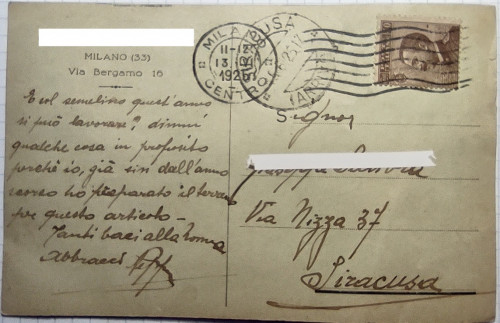 MILANO (33)
Via Bergamo 16
E col semelino quest'anno
si può lavorare? dimmi
qualche cosa in proposito
perchè io, già sin dall'anno
scorso ho preparato il terreno
per questo articolo -
Tanti baci alla Mamma
Abbracci
MILANO
CENTRO
11-12
13.
1925
SIRACUSA
Signor
Via Nizza 37
Siracusa